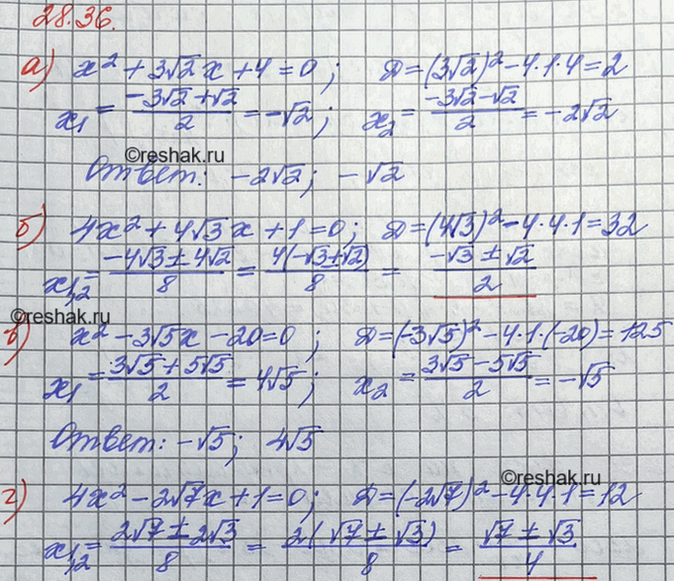 28.36.
а) x² + 3√2 x + 4 = 0 ; D = (3√2)² - 4·1·4 = 2
x₁ = (-3√2 + √2)/2 = -√2 ; x₂ = (-3√2 - √2)/2 = -2√2
©reshak.ru
Ответ: -2√2 ; -√2
б) 4x² + 4√3 x + 1 = 0 ; D = (4√3)² - 4·4·1 = 32
x₁,₂ = (-4√3 ± 4√2)/8 = 4(-√3 ± √2)/8 = (-√3 ± √2)/2
©reshak.ru
в) x² - 3√5x - 20 = 0 ; D = (-3√5)² - 4·1·(-20) = 125
x₁ = (3√5 + 5√5)/2 = 4√5 ; x₂ = (3√5 - 5√5)/2 = -√5
Ответ: -√5 ; 4√5
©reshak.ru
г) 4x² - 2√7x + 1 = 0 ; D = (-2√7)² - 4·4·1 = 12
x₁,₂ = (2√7 ± 2√3)/8 = 2(√7 ± √3)/8 = (√7 ± √3)/4